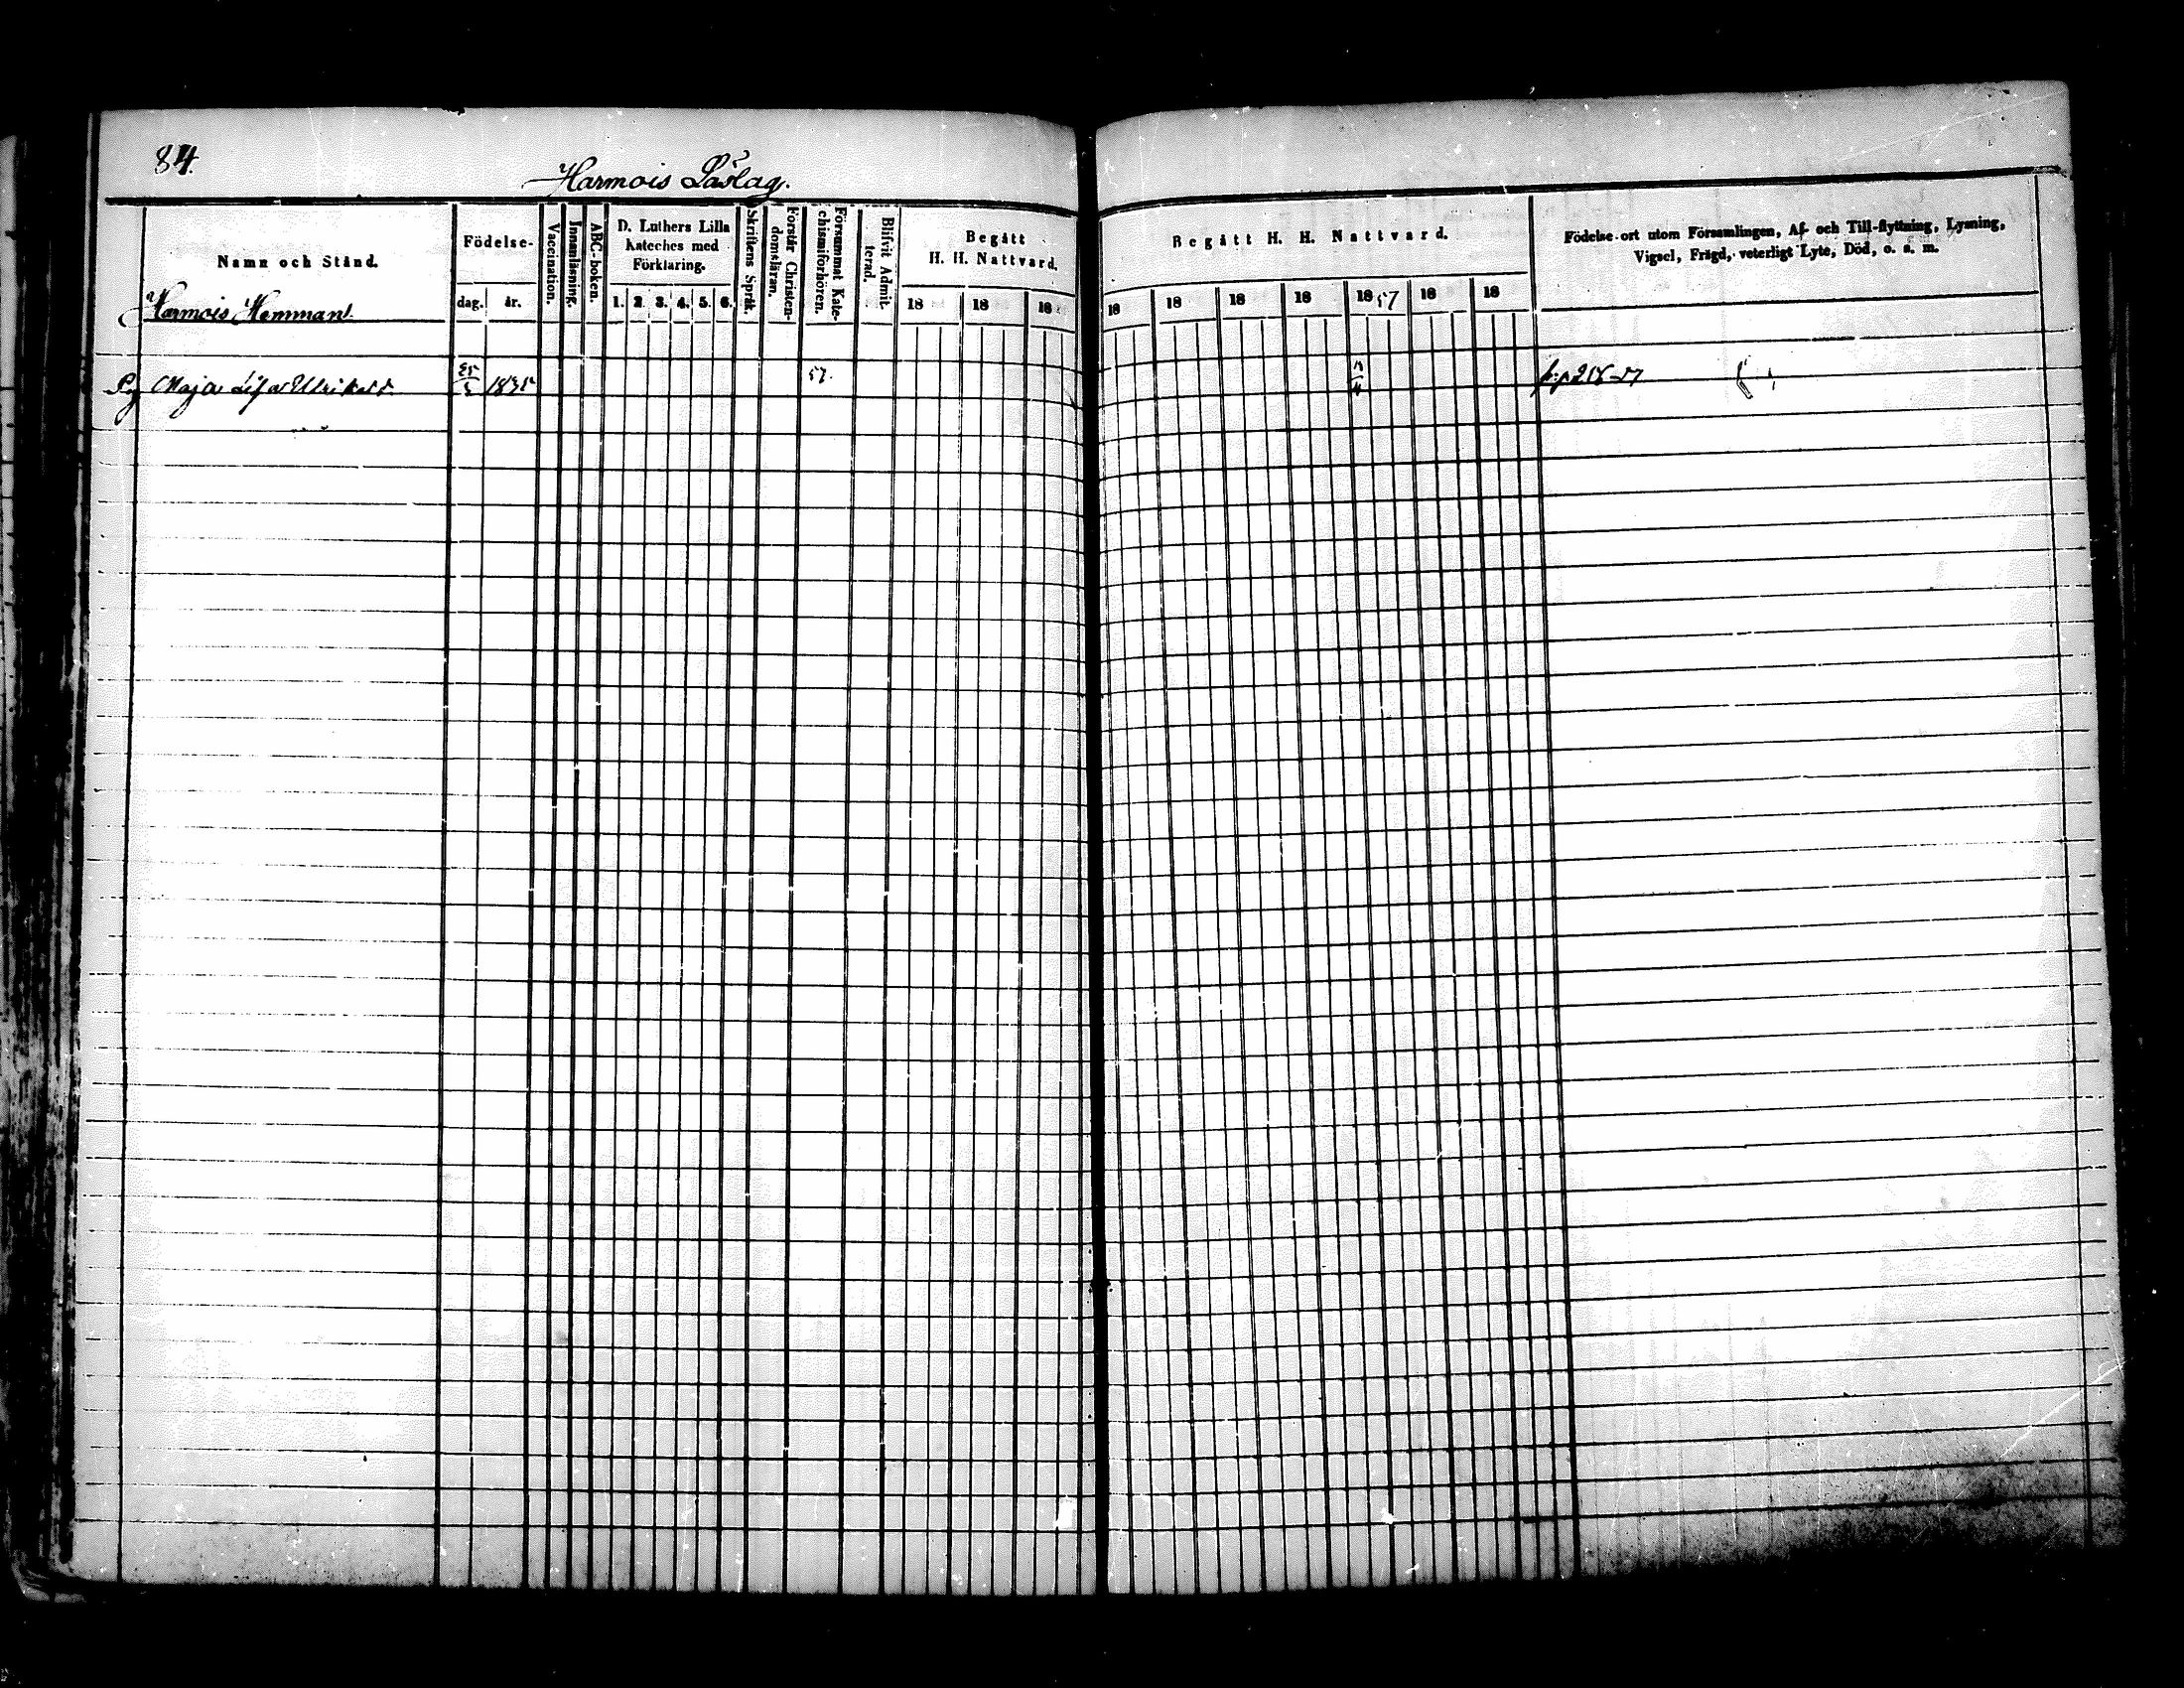 84.
Harmois Läslag.
Namn och Stånd.
Födelse-
dag. år.
Vaccination.
Innanläsning.
ABC-boken.
D. Luthers Lilla
Kateches med
Förklaring.
1. 2. 3. 4. 5. 6.
Skriftens Språk.
Förstår Christen-
domsläran.
Försummat Kate-
chismiförhören.
Blifvit Admit-
terad.
Begått
H. H. Nattvard.
18 18 18
Begått H. H. Nattvard.
18 18 18 18 1857 18 18
Födelse-ort utom Församlingen, Af- och Till-flyttning, Lysning,
Vigsel, Frägd, veterligt Lyte, Död, o. s. m.
Harmois Hemman
Pig Maja Lisa 57.